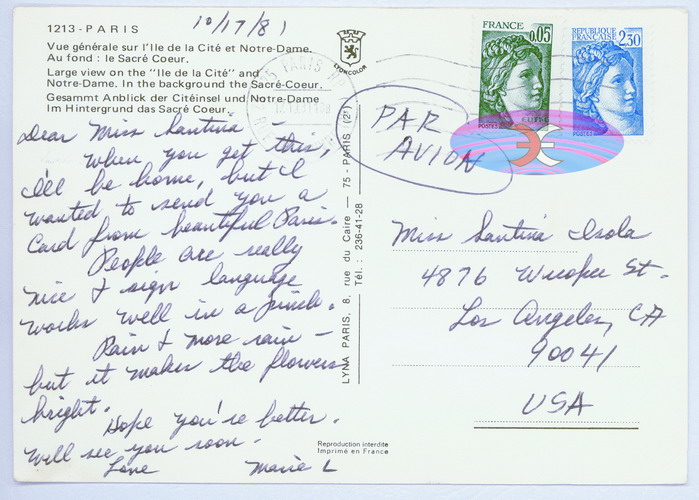 1213 - PARIS
10/17/81
Vue générale sur l'Ile de la Cité et Notre-Dame.
Au fond : le Sacré Coeur.
Large view on the "Ile de la Cité" and
Notre-Dame. In the background the Sacré-Coeur.
Gesammt Anblick der Citéinsel und Notre-Dame
Im Hintergrund das Sacré Coeur.
LYONCOLOR
PARIS
Dear Miss Santina
When you get this,
I'll be home, but I
wanted to send you a
Card from beautiful Paris.
People are really
nice & sign language
works well in a pinch.
Rain & more rain -
but it makes the flowers
bright.
Hope you're better.
Will see you soon.
Love Marie L
LYNA PARIS, 8, rue du Caire — 75 - PARIS (2e)
Tél. : 236-41-28
Reproduction interdite
Imprimé en France
FRANCE
0,05
POSTES
REPUBLIQUE
FRANCAISE
2,30
POSTES
PAR
AVION
Miss Santina Isola
4876 St.
Los Angeles, CA
90041
USA